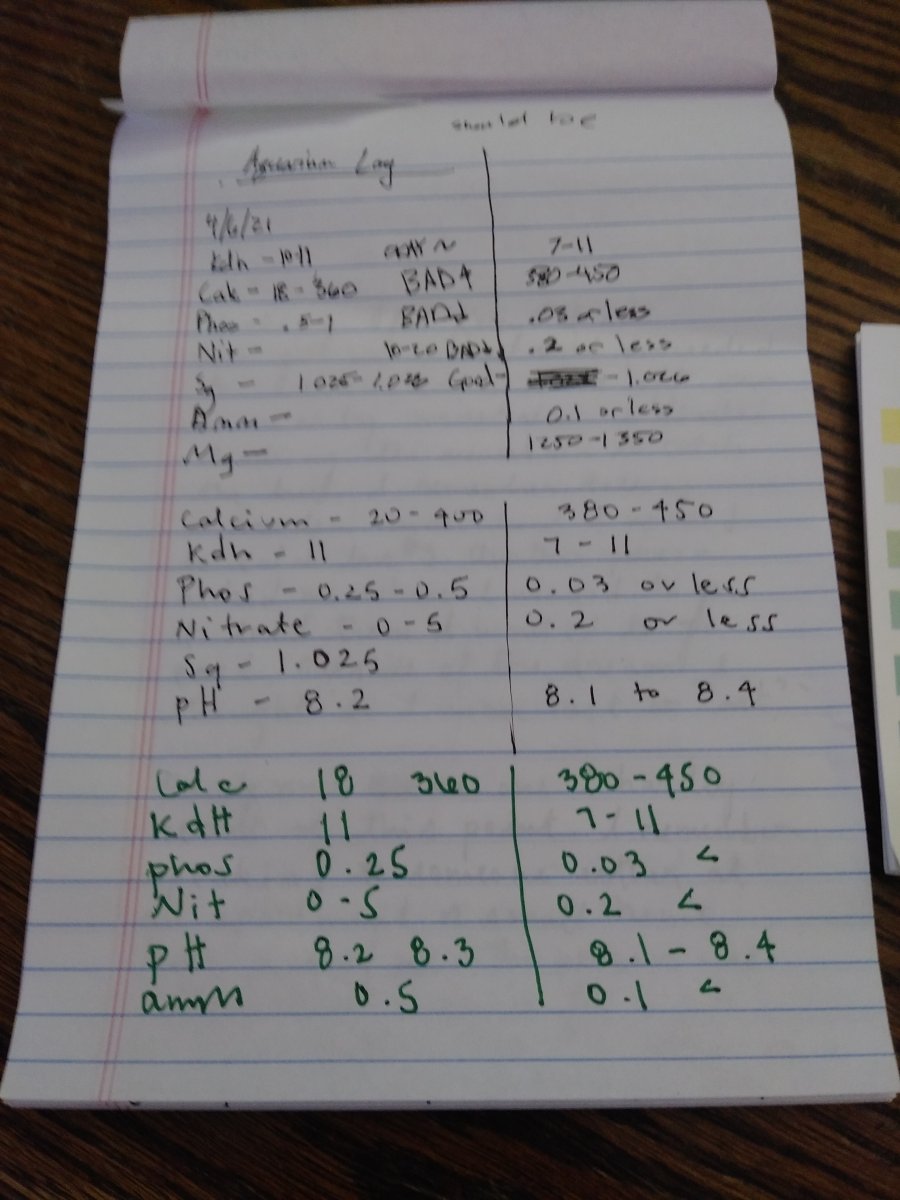 should be
Aquarium Log
4/6/21
Kdh - 10-11 7-11
Calc - 18 - 360 BAD↑ 380-450
Phos - .5-1 BAD↓ .03 or less
Nit - 10-20 BAD↓ .2 or less
Sg - 1.025-1.026 Goal - 1.026
Amm - 0.1 or less
Mg - 1250-1350
Calcium - 20-400 380-450
Kdh - 11 7-11
Phos - 0.25-0.5 0.03 or less
Nitrate - 0-5 0.2 or less
Sg - 1.025
pH - 8.2 8.1 to 8.4
Calc 18 360 380-450
KdH 11 7-11
phos 0.25 0.03 <
Nit 0-5 0.2 <
pH 8.2 8.3 8.1-8.4
amm 0.5 0.1 <